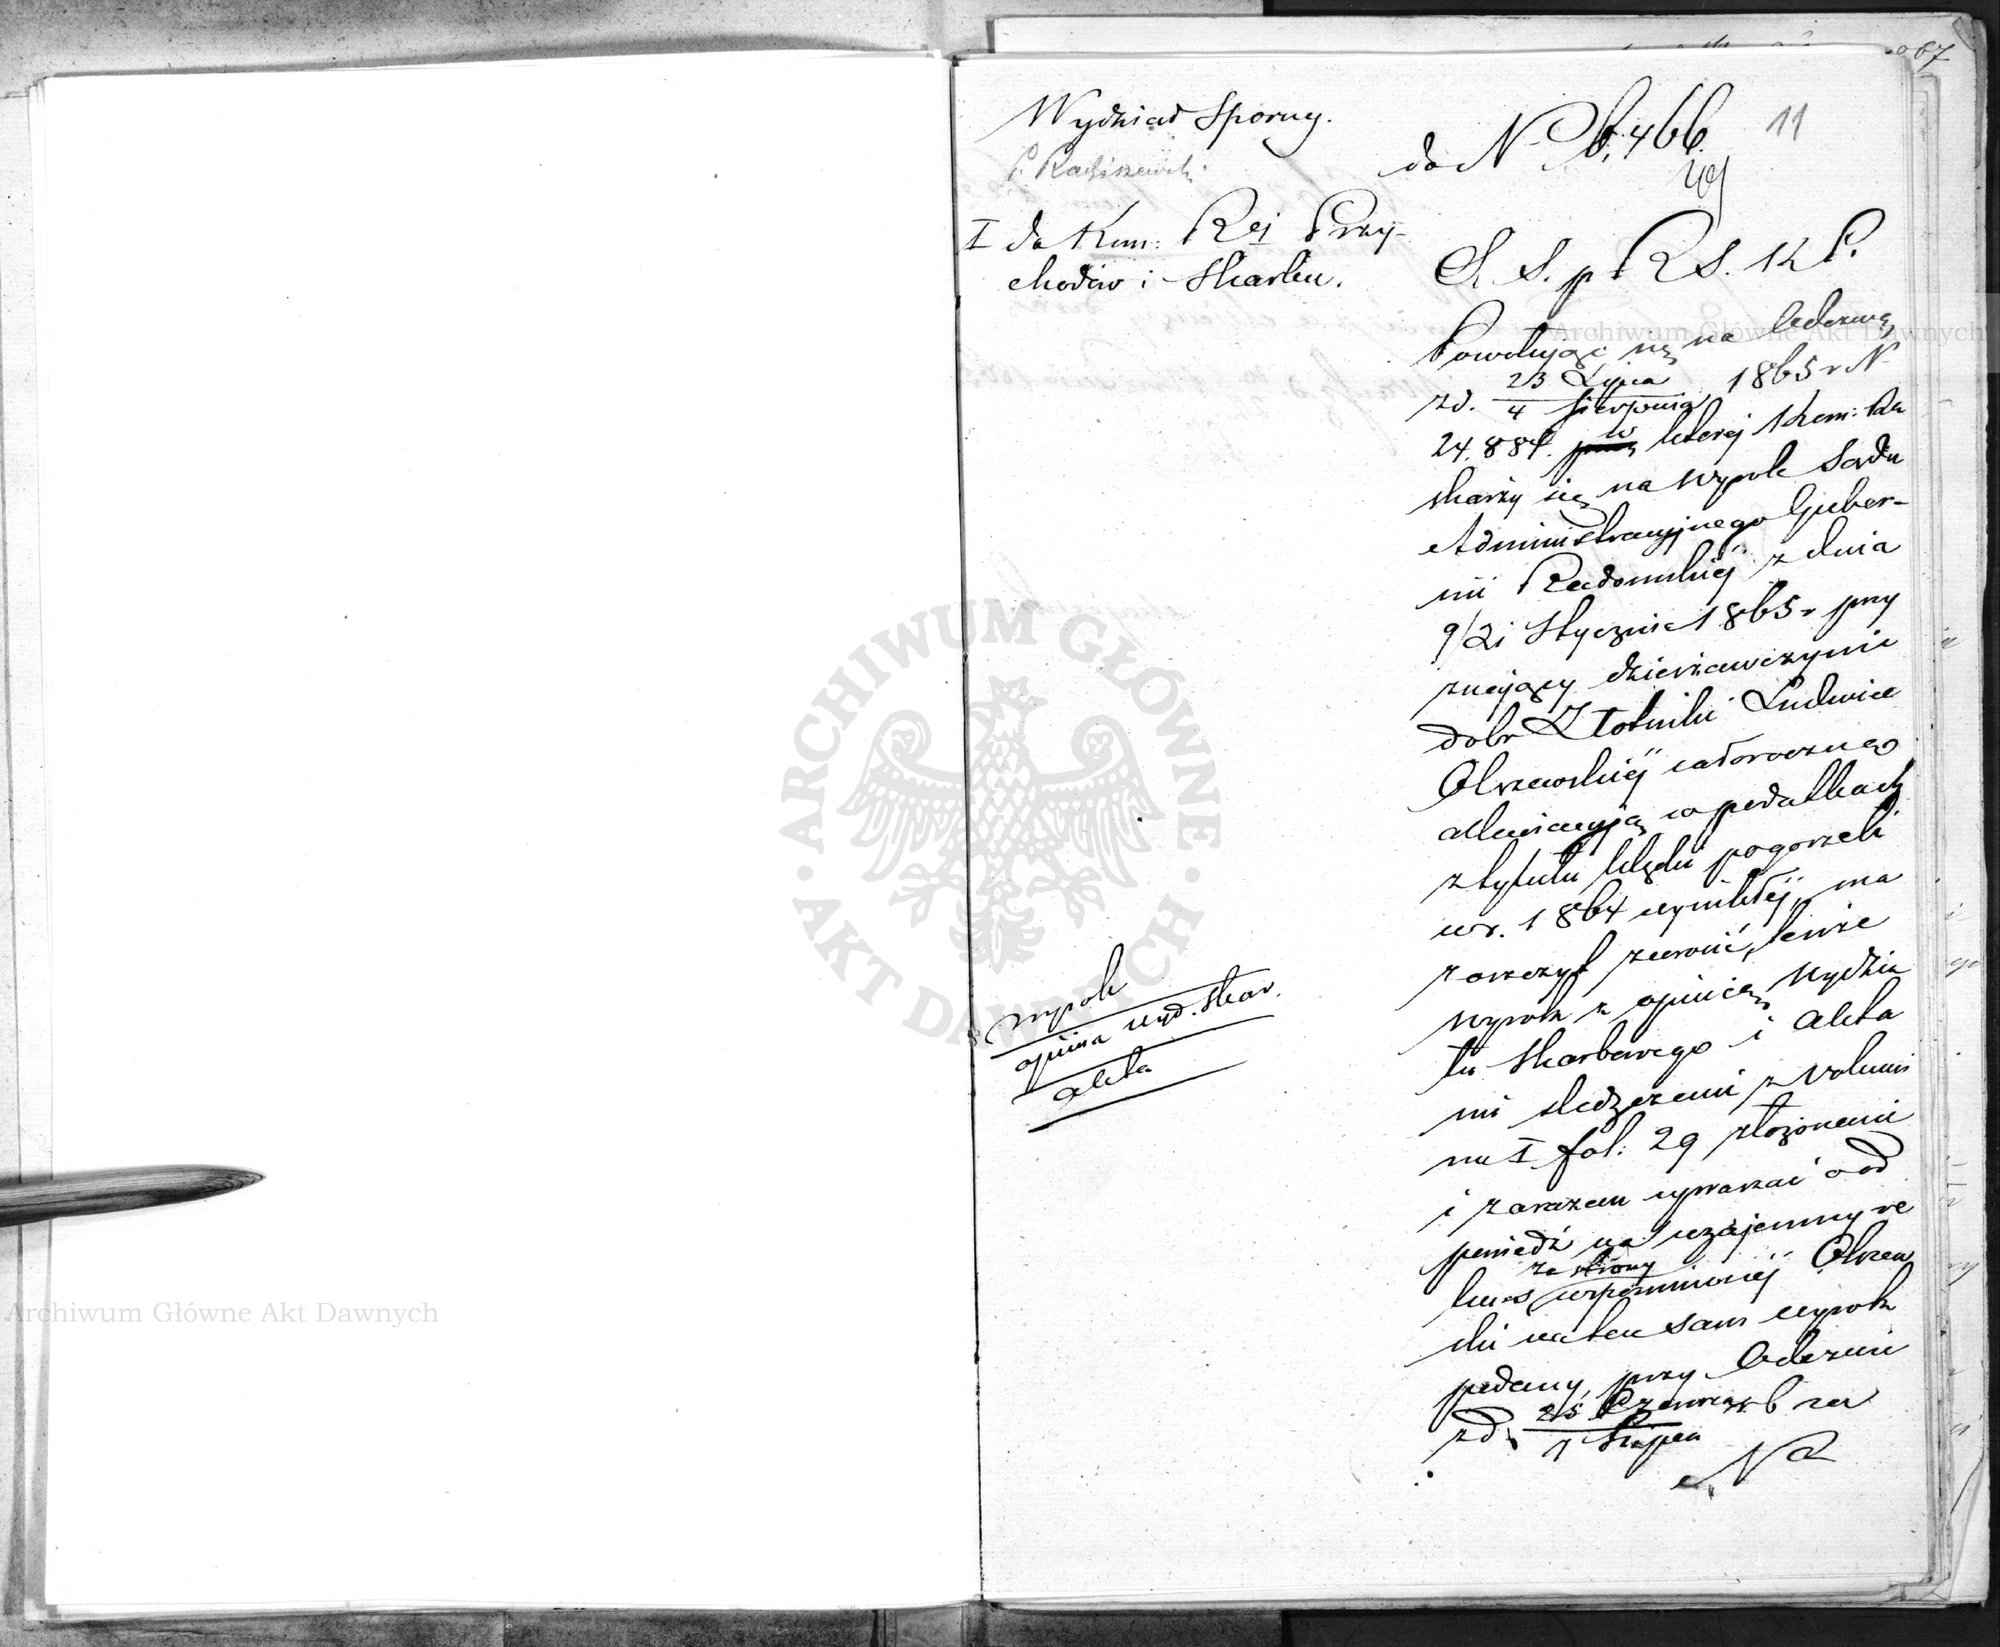 67
11
Wydział Sporny.
P. Radziszewski
I do Kom: Rzj Przy-
chodów i Skarbu.
do N 6,466
S. S. p R S. K P.
Powołując się na Odezwę
z d. 23 Lipca / 4 Sierpnia 1865 r N
24.884. w której Kom: Rz
skarży się na wyrok Sądu
Administracyjnego Guber-
nii Radomskiej z dnia
9/21 Stycznia 1865 r przy
znający dzierżawczynie
dobr Złotniki Ludwice
Olszewskiej całoroczną
allewiacyją w podatkach
z tytułu klęski pogorzeli
w r. 1864 wynikłej, ma
zaszczyt zwrócić, tenże
wyrok z opinią Wydzia
łu Skarbowego i akta
mi śledczemi z volumi
nu I fol: 29 złożonemi
i zarazem upraszać o od
powiedź na wzajemny re
kurs ze strony wspomnionej Olszew
ski na ten sam wyrok
podany, przy Odezwie
z d. 25 Czerwca / 7 Lipca b r za
N 2
wyrok
opinia wyd. Skar.
akta
ARCHIWUM GŁÓWNE AKT DAWNYCH
Archiwum Główne Akt Dawnych
Archiwum Główne Akt Dawnych